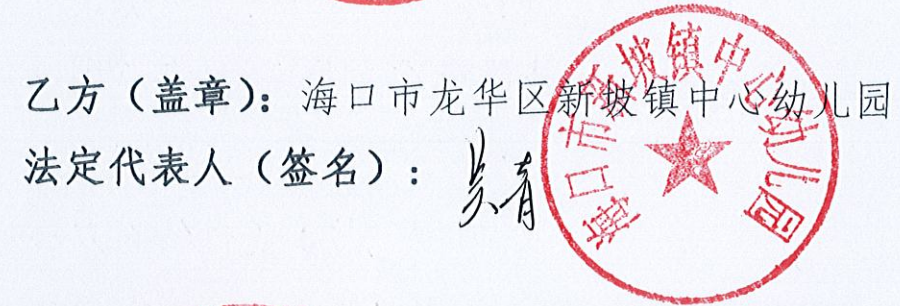 乙方（盖章）：海口市龙华区新坡镇中心幼儿园
法定代表人（签名）：吴青
海口市新坡镇中心幼儿园